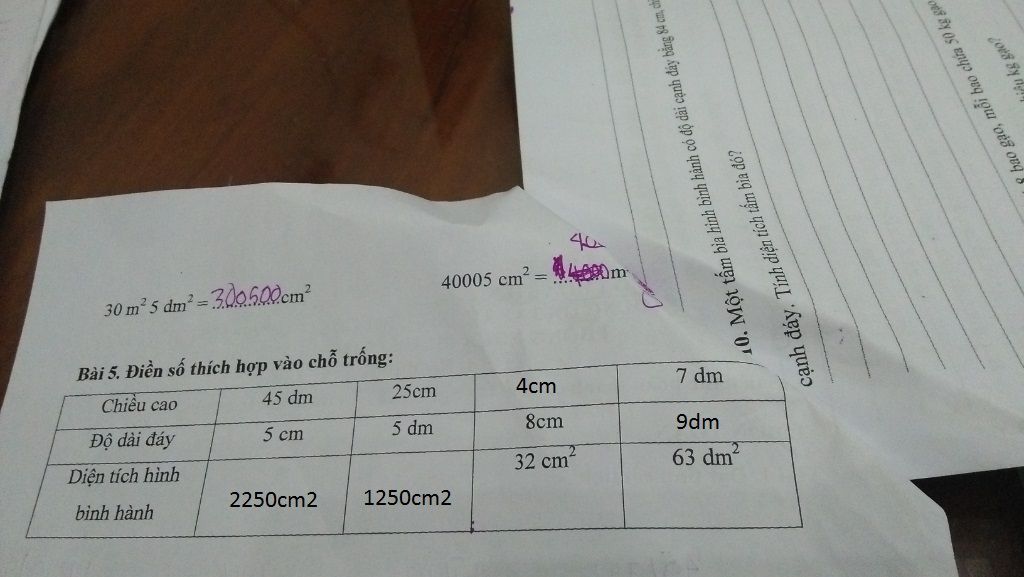 30 m² 5 dm² = 300500 cm²
40005 cm² = 4000 m
40
Bài 5. Điền số thích hợp vào chỗ trống:
Chiều cao 45 dm 25cm 4cm 7 dm
Độ dài đáy 5 cm 5 dm 8cm 9dm
Diện tích hình bình hành 2250cm2 1250cm2 32 cm² 63 dm²
10. Một tấm bìa hình bình hành có độ dài cạnh đáy bằng 84 cm,
cạnh đáy. Tính diện tích tấm bìa đó?
8 bao gạo, mỗi bao chứa 50 kg gạo
kg gạo?